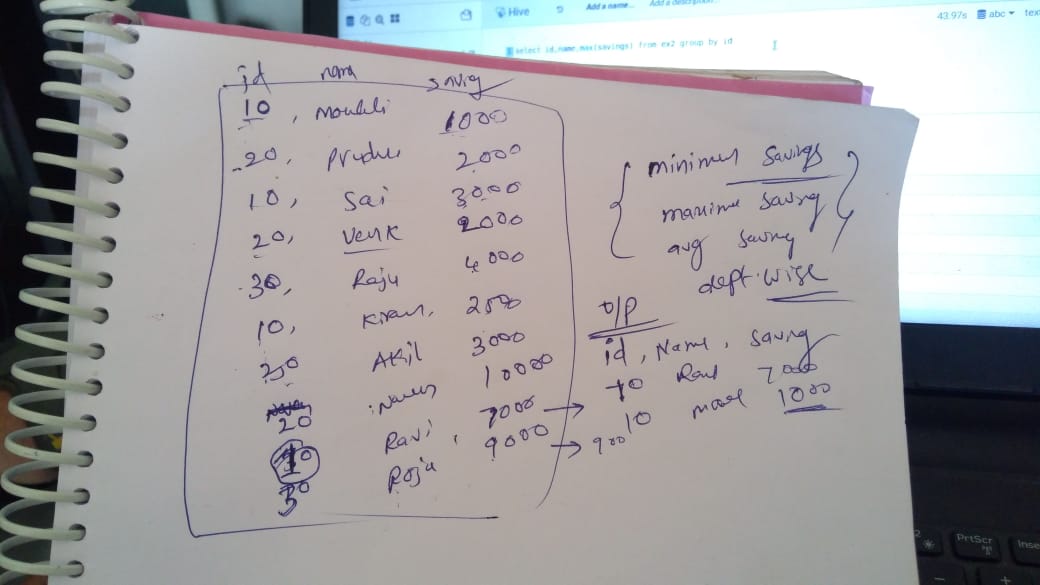 Hive Add a name... Add a description...
43.97s abc text
select id,name,max(savings) from ex2 group by id
id name saving
10, 1000
20, 2000
10, Sai 3000
20, Venk 2000
30, Raju 4000
10, Kiran, 2500
Akil 3000
10000
20 Ravi, 7000 →
10 Roja 9000 → 900
30
saving
maxime saving
avg saving
dept.wise
o/p
id, Name, saving
10 Ravi 7000
10 1000
PrtScr
Inse